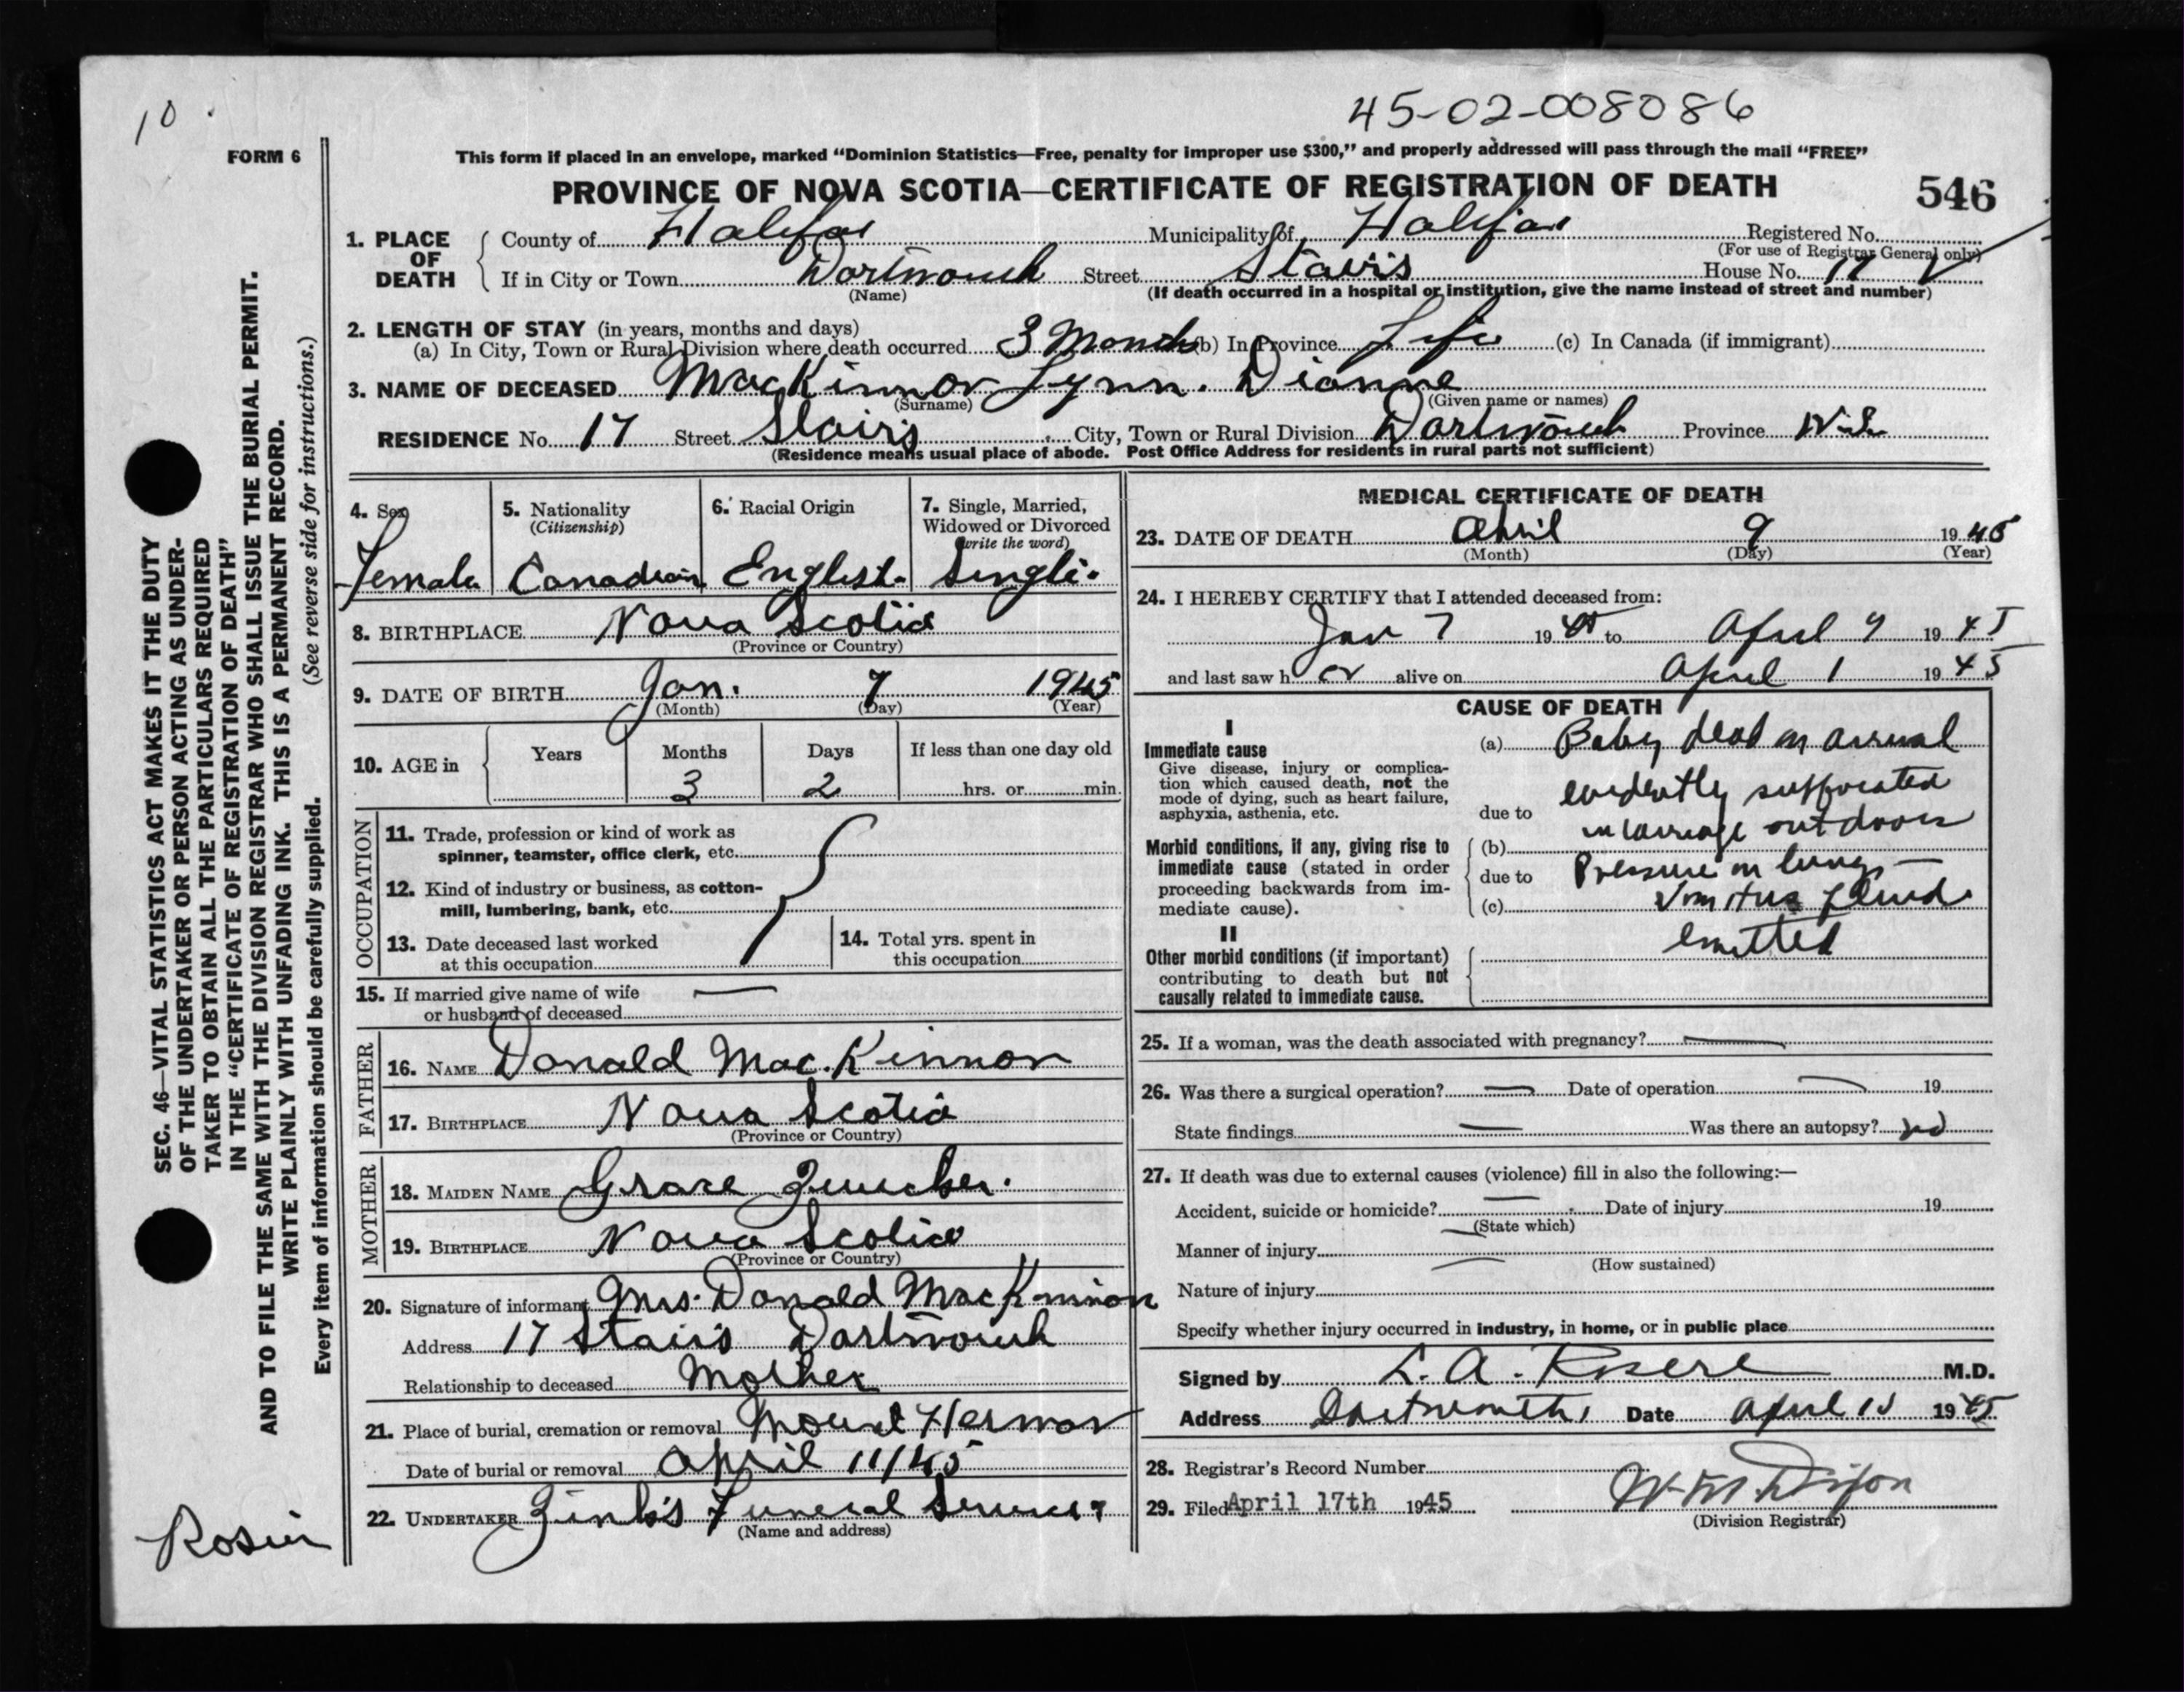 10
45-02-008086
FORM 6
This form if placed in an envelope, marked "Dominion Statistics—Free, penalty for improper use $300," and properly addressed will pass through the mail "FREE"
PROVINCE OF NOVA SCOTIA—CERTIFICATE OF REGISTRATION OF DEATH
546
1. PLACE OF DEATH County of Halifax Municipality of Halifax Registered No.
(For use of Registrar General only)
If in City or Town Dartmouth Street Stairs House No. 17
(Name) (If death occurred in a hospital or institution, give the name instead of street and number)
2. LENGTH OF STAY (in years, months and days)
(a) In City, Town or Rural Division where death occurred 3 Months (b) In Province Life (c) In Canada (if immigrant)
3. NAME OF DECEASED MacKinnon Lynn. Dianne
(Surname) (Given name or names)
RESIDENCE No. 17 Street Stairs City, Town or Rural Division Dartmouth Province N.S.
(Residence means usual place of abode. Post Office Address for residents in rural parts not sufficient)
4. Sex Female
5. Nationality (Citizenship) Canadian
6. Racial Origin English.
7. Single, Married, Widowed or Divorced (write the word) Single.
8. BIRTHPLACE Nova Scotia
(Province or Country)
9. DATE OF BIRTH Jan. 7 1945
(Month) (Day) (Year)
10. AGE in Years Months Days If less than one day old
3 2 hrs. or min.
OCCUPATION
11. Trade, profession or kind of work as
spinner, teamster, office clerk, etc.
12. Kind of industry or business, as cotton-
mill, lumbering, bank, etc.
13. Date deceased last worked
at this occupation
14. Total yrs. spent in
this occupation
15. If married give name of wife —
or husband of deceased
FATHER
16. NAME Donald Mac.Kinnon
17. BIRTHPLACE Nova Scotia
(Province or Country)
MOTHER
18. MAIDEN NAME Grace
19. BIRTHPLACE Nova Scotia
(Province or Country)
20. Signature of informant Mrs. Donald MacKinnon
Address 17 Stairs Dartmouth
Relationship to deceased Mother
21. Place of burial, cremation or removal Mount Hermon
Date of burial or removal April 11/45
22. UNDERTAKER Zink's Funeral Service
(Name and address)
MEDICAL CERTIFICATE OF DEATH
23. DATE OF DEATH April 9 1945
(Month) (Day) (Year)
24. I HEREBY CERTIFY that I attended deceased from:
Jan 7 1945 to April 9 1945
and last saw her alive on April 1 1945
CAUSE OF DEATH
I
Immediate cause
Give disease, injury or complica-
tion which caused death, not the
mode of dying, such as heart failure,
asphyxia, asthenia, etc.
(a) Baby dead on arrival
evidently suffocated
due to
in carriage outdoors
Morbid conditions, if any, giving rise to
immediate cause (stated in order
proceeding backwards from im-
mediate cause).
(b)
due to Pressure on lungs —
(c) Vomitus fluid
emitted
II
Other morbid conditions (if important)
contributing to death but not
causally related to immediate cause.
25. If a woman, was the death associated with pregnancy? —
26. Was there a surgical operation? — Date of operation — 19
State findings — Was there an autopsy? no
27. If death was due to external causes (violence) fill in also the following:—
Accident, suicide or homicide? — Date of injury 19
(State which)
Manner of injury
(How sustained)
Nature of injury
Specify whether injury occurred in industry, in home, or in public place
Signed by L. A. M.D.
Address Dartmouth, Date April 1945
28. Registrar's Record Number
29. Filed April 17th 1945
(Division Registrar)
SEC. 46—VITAL STATISTICS ACT MAKES IT THE DUTY
OF THE UNDERTAKER OR PERSON ACTING AS UNDER-
TAKER TO OBTAIN ALL THE PARTICULARS REQUIRED
IN THE "CERTIFICATE OF REGISTRATION OF DEATH"
AND TO FILE THE SAME WITH THE DIVISION REGISTRAR WHO SHALL ISSUE THE BURIAL PERMIT.
WRITE PLAINLY WITH UNFADING INK. THIS IS A PERMANENT RECORD.
Every item of information should be carefully supplied. (See reverse side for instructions.)